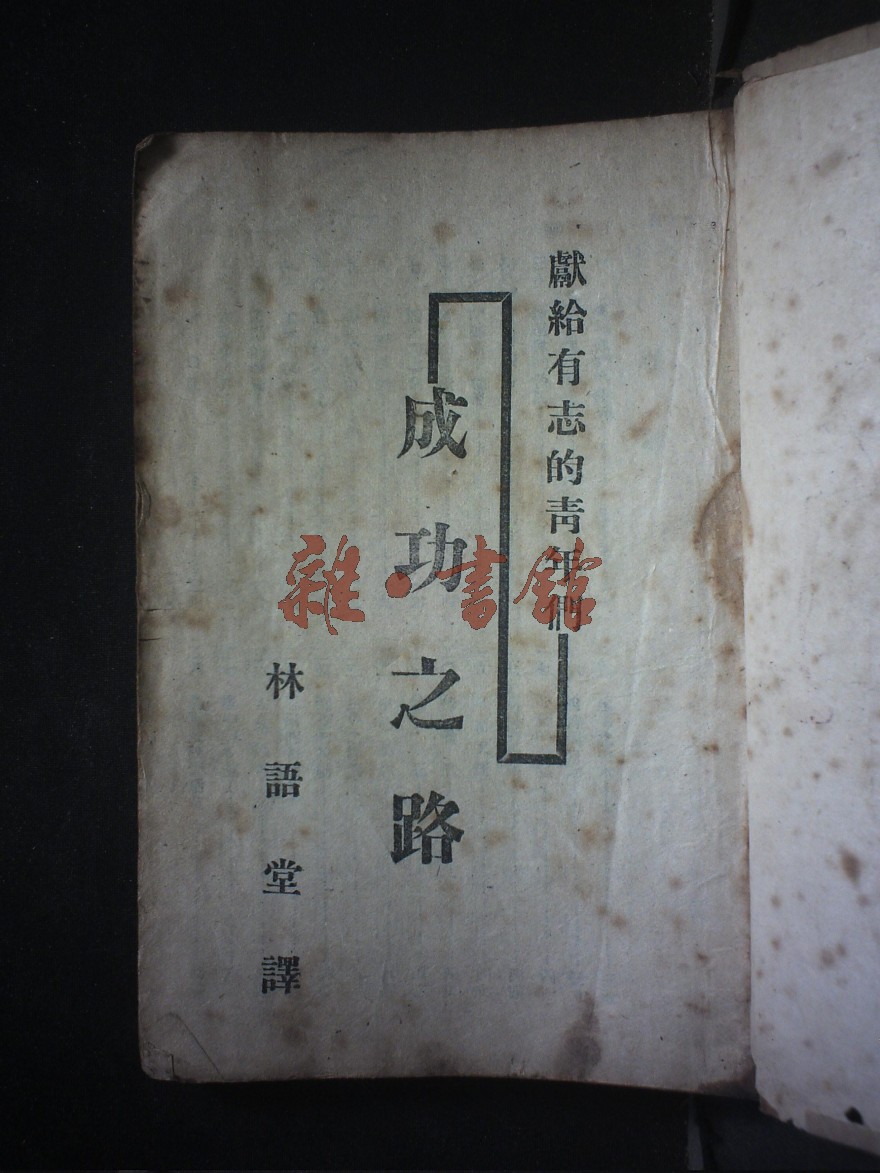 獻給有志的青年們
成功之路
林語堂譯
雜·書館